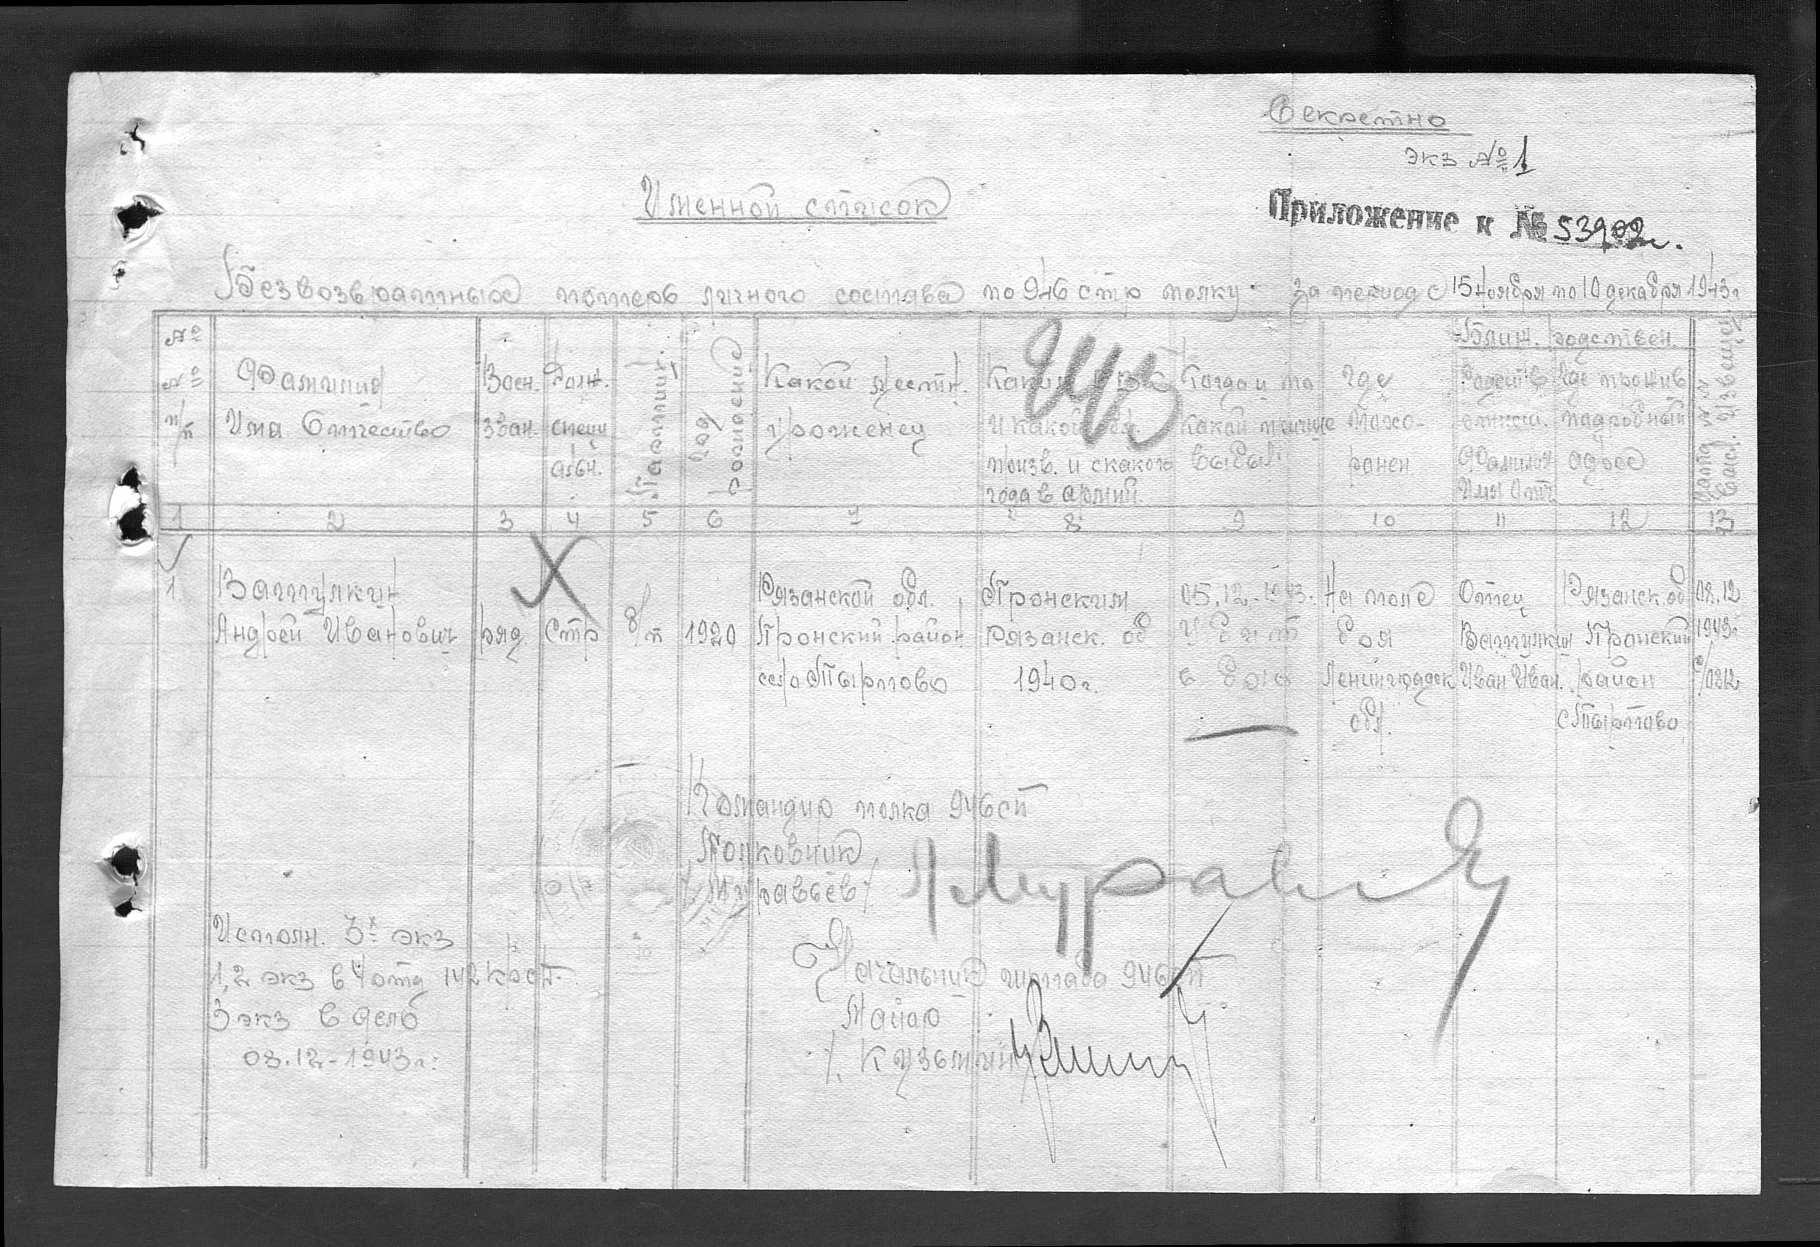 Секретно
экз № 1
Именной список
Приложение к № 53902с.
безвозвратных потерь личного состава по 946 стр полку за период с 15 ноября по 10 декабря 1943г
№ № п/п
Фамилия Имя Отчество
Воен. зван.
Долж. специ альн.
Партийн.
год рождения
Какой местн. уроженец
и какой обл. призв. и с какого года в армии
Когда и по какой причине выбыл
где похоронен
Ближ. родствен.
Фамилия Имя Отч.
где прожив подробный адрес
946
1 2 3 4 5 6 7 8 9 10 11 12 13
1
Ватулкин Андрей Иванович
ряд.
Стр
б/п
1920
Рязанской обл. Пронский район село Тырново
Пронским Рязанск. об 1940г.
05.12.1943. Убит в бою
На поле боя Ленинградск обл.
Отец Ватулкин Иван Иван.
Рязанск. об Пронский район с Тырново
08.12 1943г
Командир полка 946сп
Полковник
/Муравьёв/
Исполн. 3х экз
1,2 экз в 4 отд
3 экз в дело
03.12-1943г.
Начальник штаба 946сп
Майор
/Кузьмин